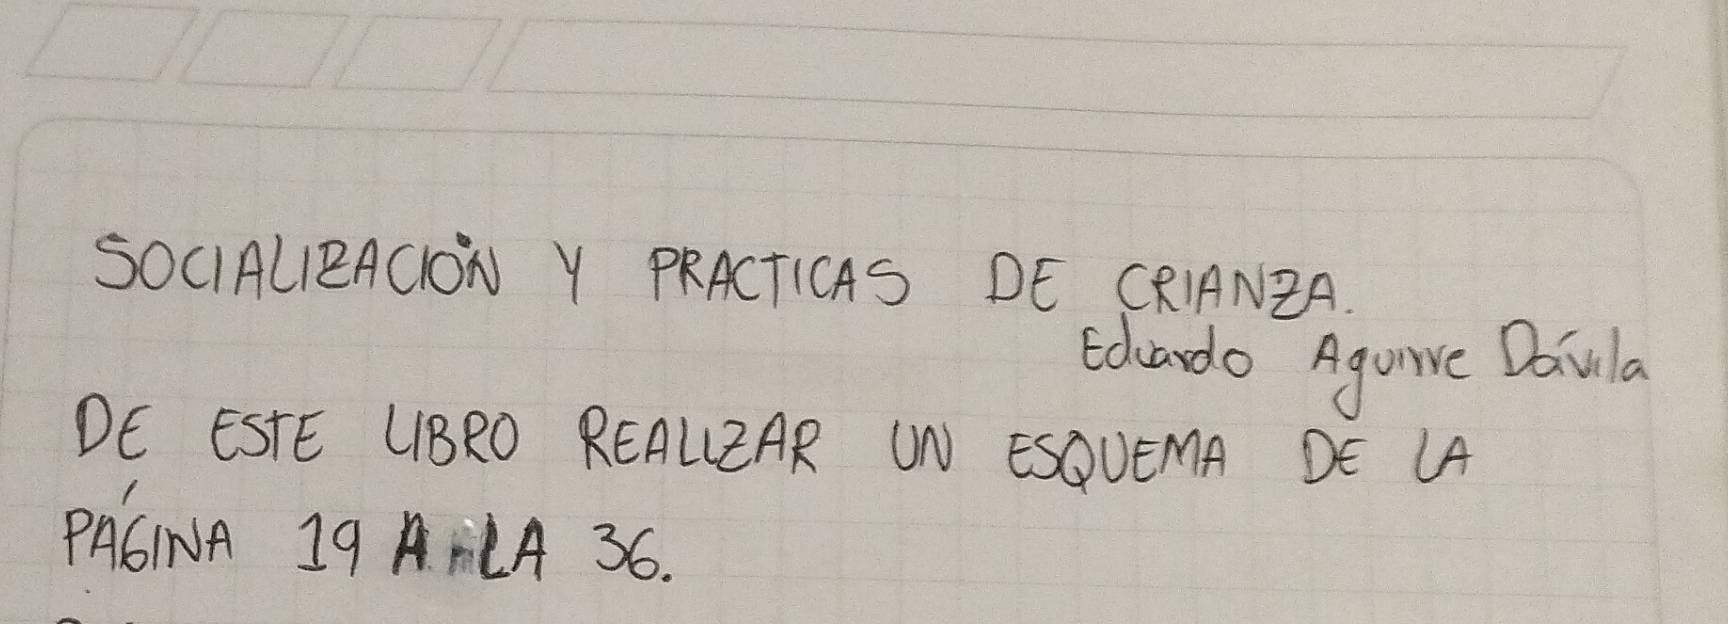 SOCIALIZACIÓN Y PRACTICAS DE CRIANZA.
Eduardo Aguirre Dávila
DE ESTE LIBRO REALIZAR UN ESQUEMA DE LA
PÁGINA 19 A LA 36.